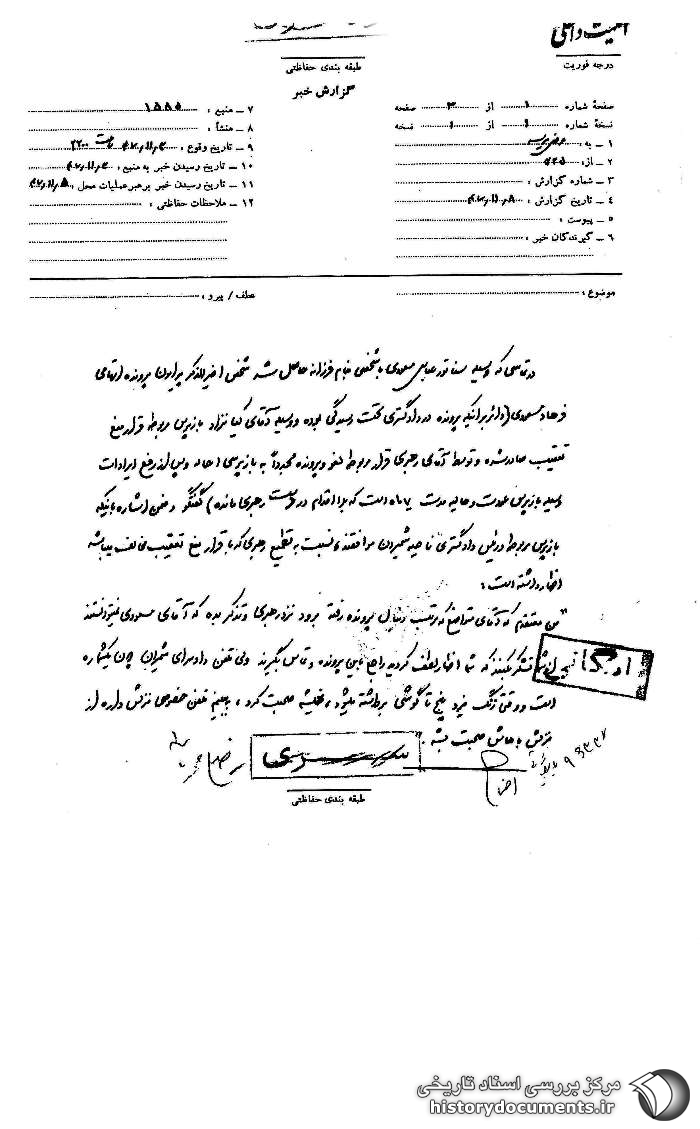 امنیت داخلی
درجه فوریت
طبقه بندی حفاظتی
گزارش خبر
صفحهٔ شماره : ۱ از ۳ صفحه
نسخهٔ شماره : ۱ از ۱ نسخه
۱ ـ به :
۲ ـ از :
۳ ـ شماره گزارش :
۴ ـ تاریخ گزارش :
۵ ـ پیوست :
۶ ـ گیرندگان خبر :
۷ ـ منبع : ۱۵۸۸۰
۸ ـ منشأ :
۹ ـ تاریخ وقوع : ساعت ۲۲۰۰
۱۰ ـ تاریخ رسیدن خبر به منبع :
۱۱ ـ تاریخ رسیدن خبر برهبر عملیات محل :
۱۲ ـ ملاحظات حفاظتی :
موضوع :
عطف / پیرو :
در تماسی که بوسیله سناتور عباس مسعودی با شخصی بنام فرزانه حاصل شد شخص اخیرالذکر پیرامون پرونده اتهامی
فرهاد مسعودی (دائر بر اینکه پرونده در دادگستری تحت رسیدگی بوده و وسیله آقای کیانژاد بازپرس مربوطه قرار منع
تعقیب صادر شده و توسط آقای رهبری قرار مربوطه لغو و پرونده مجدداً به بازپرسی احاله و پس از رفع ایرادات
وسیله بازپرس عودت و حالیه مدت ۷ ماه است که بلا اقدام در دست رهبری مانده) گفتگو و ضمن اشاره باینکه
بازپرس مربوطه و رئیس دادگستری ناحیه شمیران موافقند، نسبت به تطمیع رهبری که با قرار منع تعقیب مخالف میباشد
اظهار داشته است :
"من معتقدم که آقای متواضع که مرتب دنبال پرونده رفته برود نزد رهبری و تذکر بده که آقای مسعودی نمیتوانستند
از شما تشکر بکنند که شما اظهار لطف کردید راجع باین پرونده و تماس بگیرند ولی تلفن دادسرای شمیران چون یکشماره
است و وقتی زنگ میزد پنج تا گوشی برداشته میشود، نمیشه صحبت کرد، ببینیم تلفن خصوصی منزلش داره از
منزلش باهاش صحبت بشه."
بایگانی
سری
طبقه بندی حفاظتی
مرکز بررسی اسناد تاریخی
historydocuments.ir